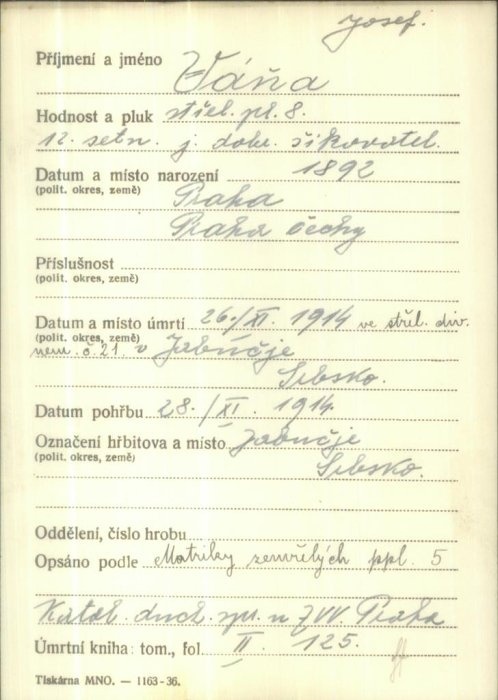 Josef.
Příjmení a jméno Váňa
Hodnost a pluk střel. pl. 8.
12. setn. j. dobr. šikovatel.
Datum a místo narození 1892
(polit. okres, země) Praha
Praha Čechy
Příslušnost
(polit. okres, země)
Datum a místo úmrtí 26./XI. 1914 ve střel. div.
(polit. okres, země)
nem. č. 21 v Jabučje
Srbsko.
Datum pohřbu 28./XI. 1914.
Označení hřbitova a místo Jabučje
(polit. okres, země) Srbsko.
Oddělení, číslo hrobu
Opsáno podle Matriky zemřelých ppl. 5
Katol. duch. spr. u ZVV. Praha
Úmrtní kniha: tom., fol. II. 125.
Tiskárna MNO. — 1163-36.